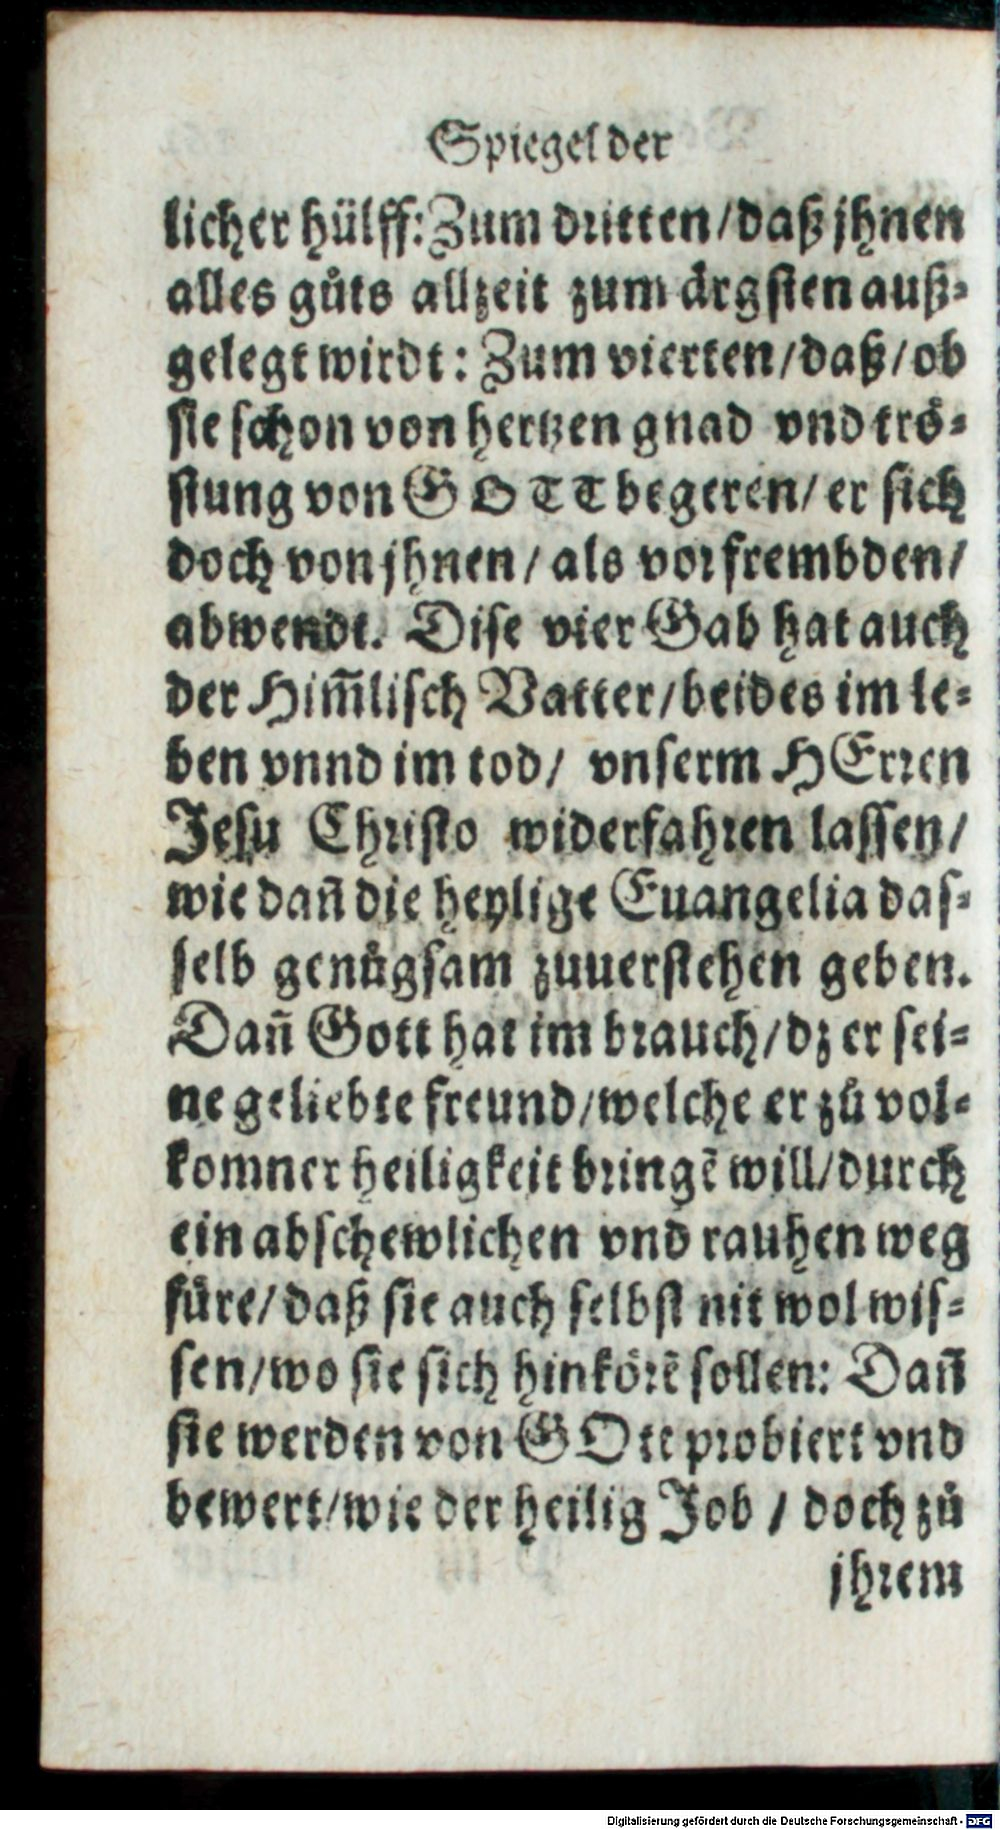 Spiegel der
licher hülff: Zum dritten / daß jhnen
alles gůts allzeit zum ärgsten auß⸗
gelegt wirdt: Zum vierten / daß / ob
sie schon von hertzen gnad vnd trö⸗
stung von GOTT begeren / er sich
doch von jhnen / als vor frembden /
abwendt. Dise vier Gab hat auch
der Him̃lisch Vatter / beides im le⸗
ben vnnd im tod / vnserm HErren
Jesu Christo widerfahren lassen /
wie dañ die heylige Euangelia das⸗
selb genůgsam zuuerstehen geben.
Dañ Gott hat im brauch / dz er sei⸗
ne geliebte freund / welche er zů vol⸗
komner heiligkeit bringẽ will / durch
ein abschewlichen vnd rauhen weg
füre / daß sie auch selbst nit wol wis⸗
sen / wo sie sich hinkörẽ sollen: Dañ
sie werden von GOtt probiert vnd
bewert / wie der heilig Job / doch zů
jhrem
Digitalisierung gefördert durch die Deutsche Forschungsgemeinschaft - DFG